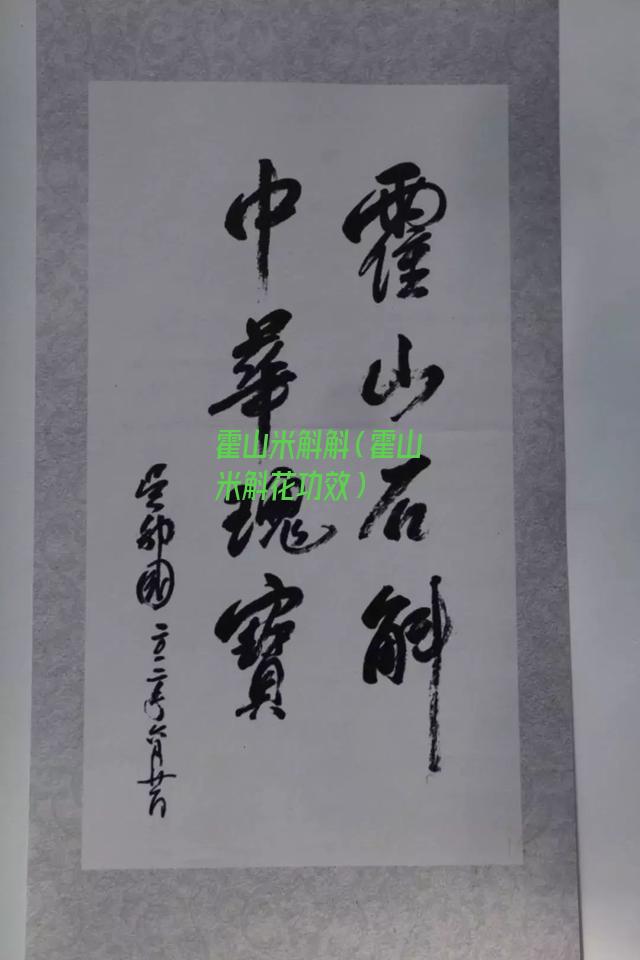 霍山石斛
中華瑰寶
吴邦國 二〇一二年六月廿
霍山米斛斛(霍山
米斛花功效)